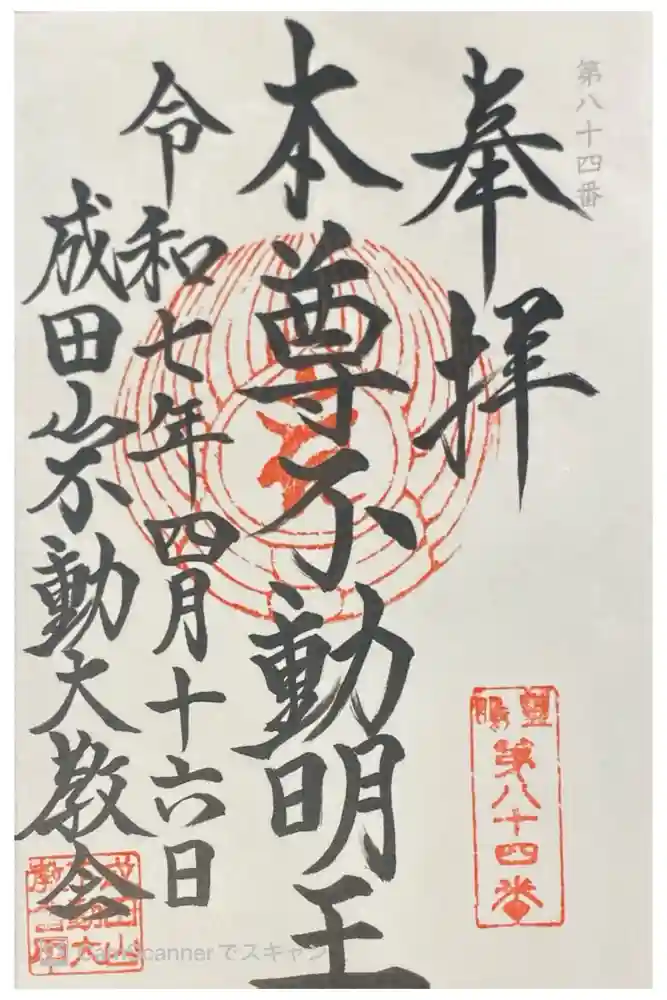 第八十四番
奉拝
本尊不動明王
令和七年四月十六日
成田山不動大教会
第八十四番
CamScannerでスキャン